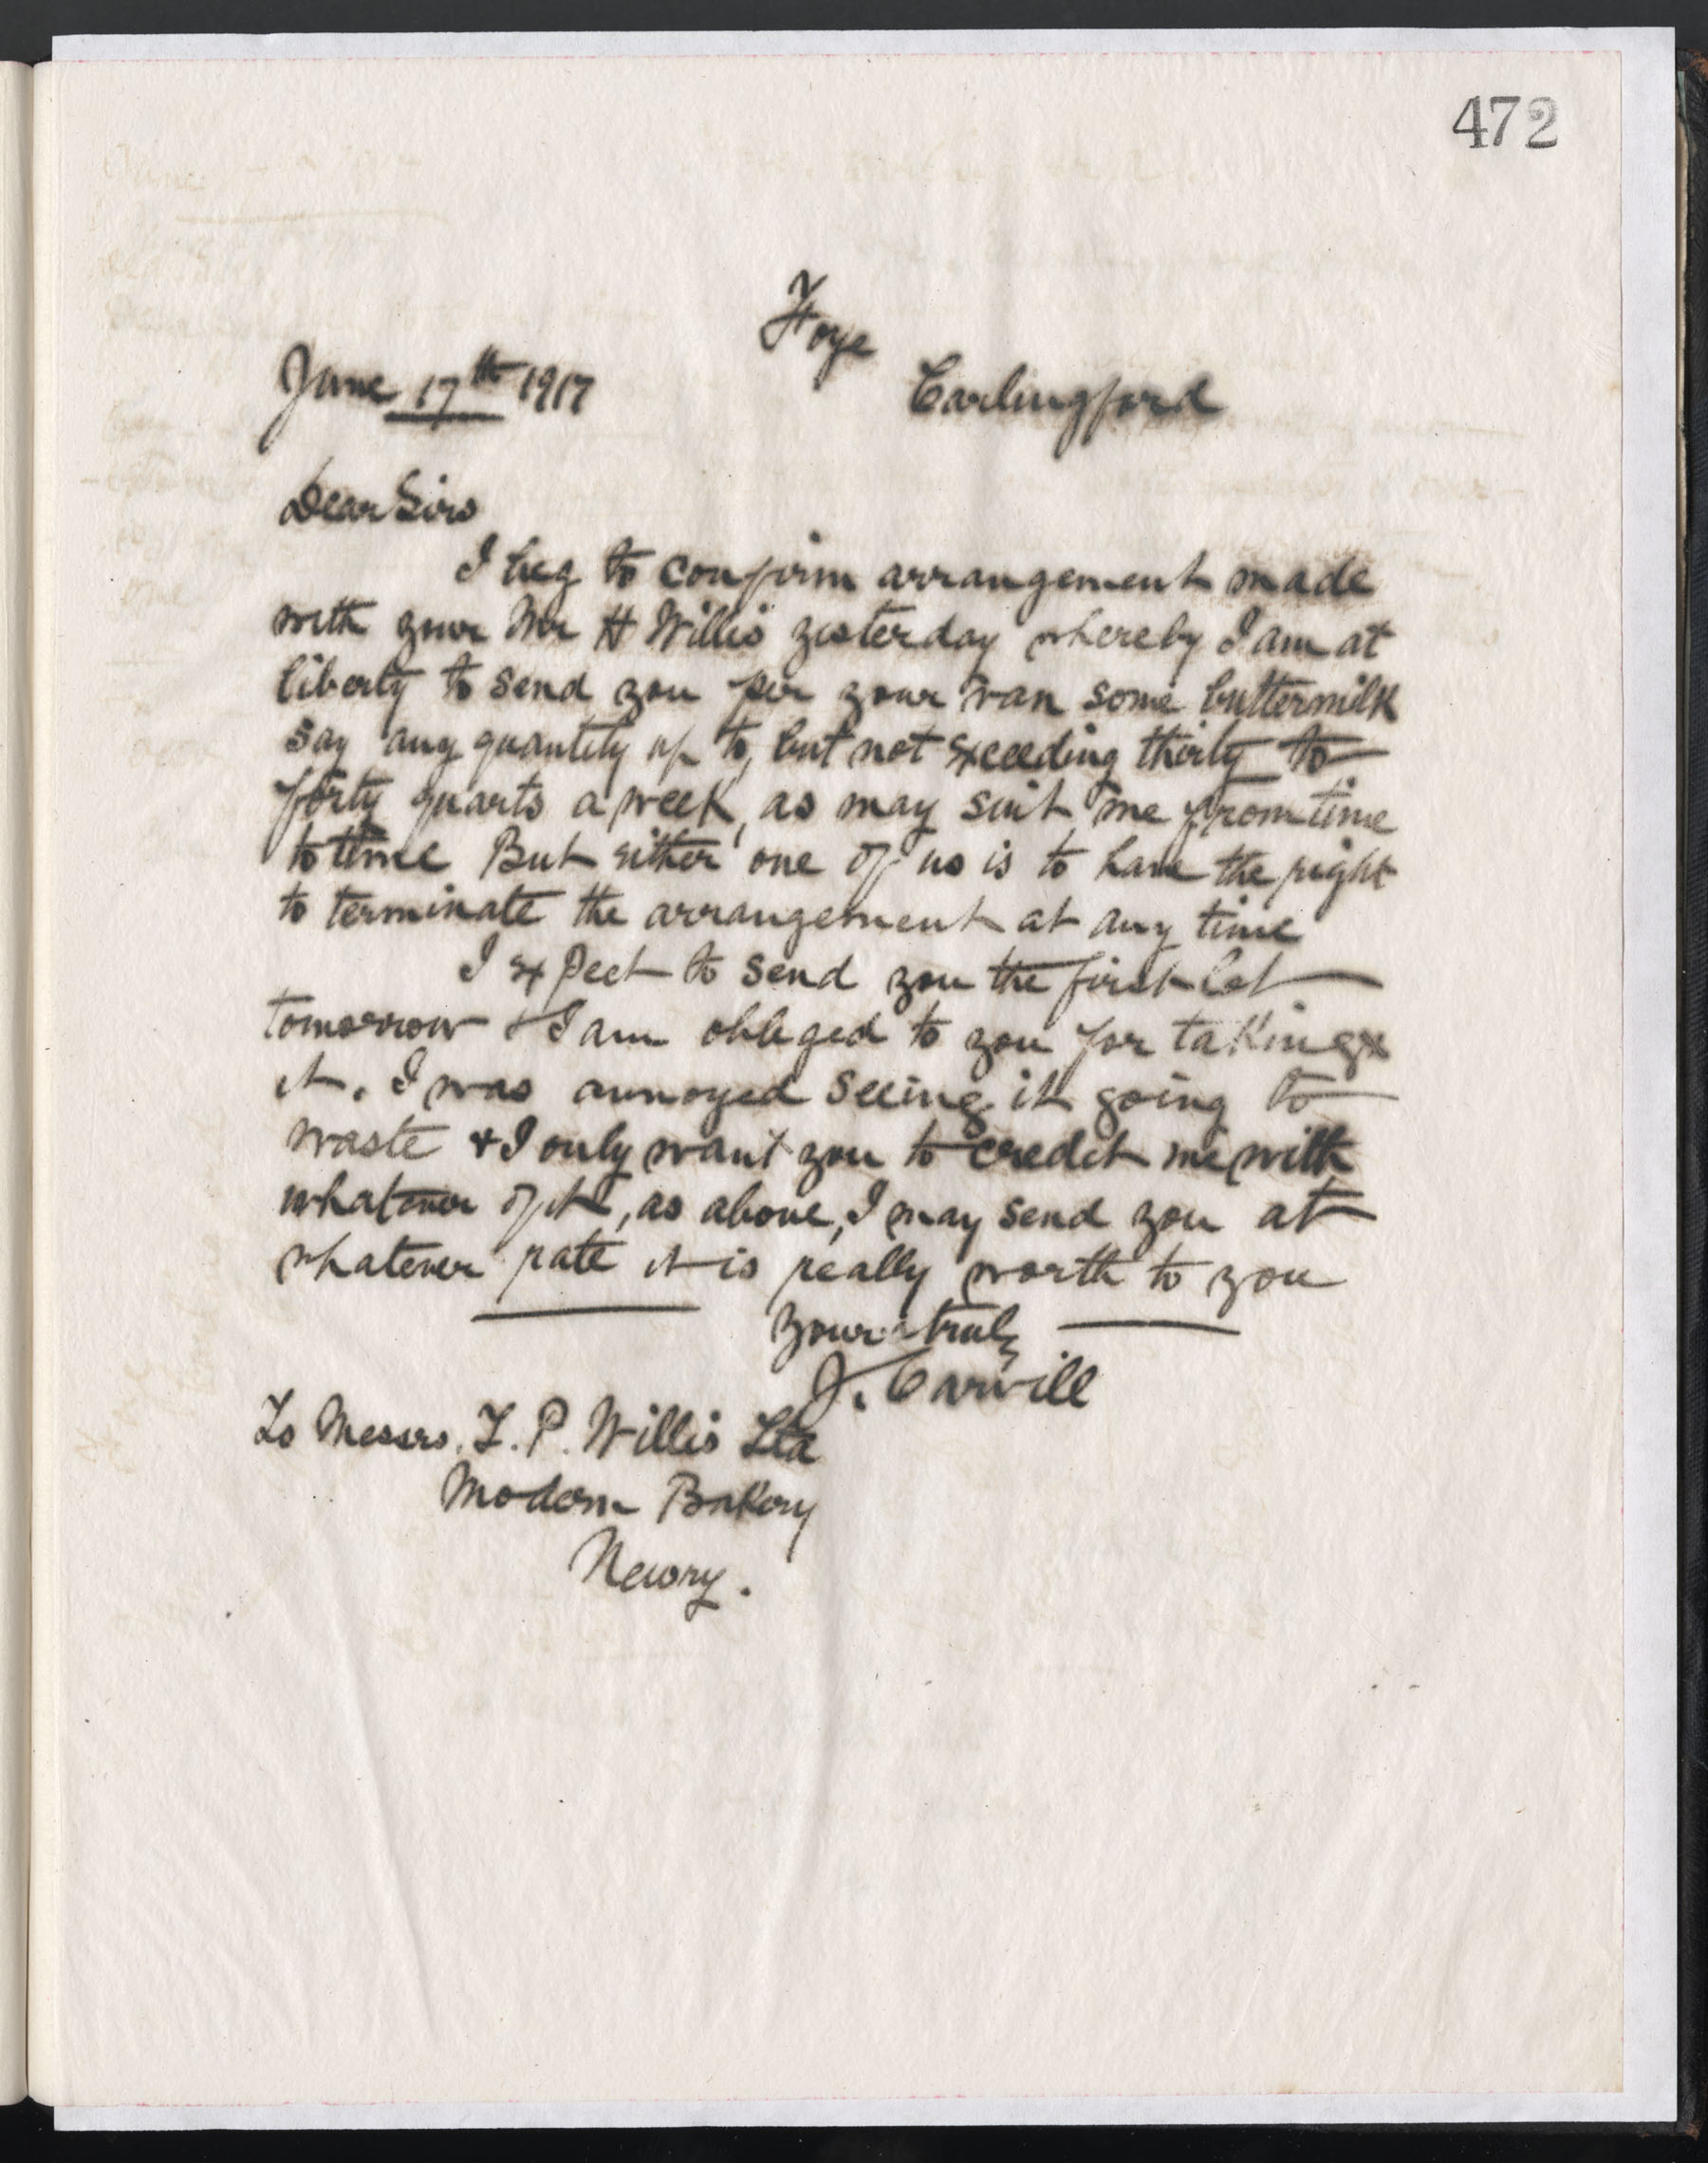 472
Foye
June 17th 1917
Carlingford
Dear Sirs
I beg to confirm arrangement made
with your Mr H Willis yesterday whereby I am at
liberty to send you per your van some buttermilk
say any quantity up to, but not exceeding thirty to
forty quarts a week, as may suit me from time
to time But either one of us is to have the right
to terminate the arrangement at any time
I expect to send you the first lot
tomorrow & I am obliged to you for taking
it. I was annoyed seeing it going to
waste & I only want you to credit me with
whatever of it, as above, I may send you at
whatever rate it is really worth to you
Yours truly
J. Carvill
To Messrs. F. P. Willis Ltd
Modern Bakery
Newry.